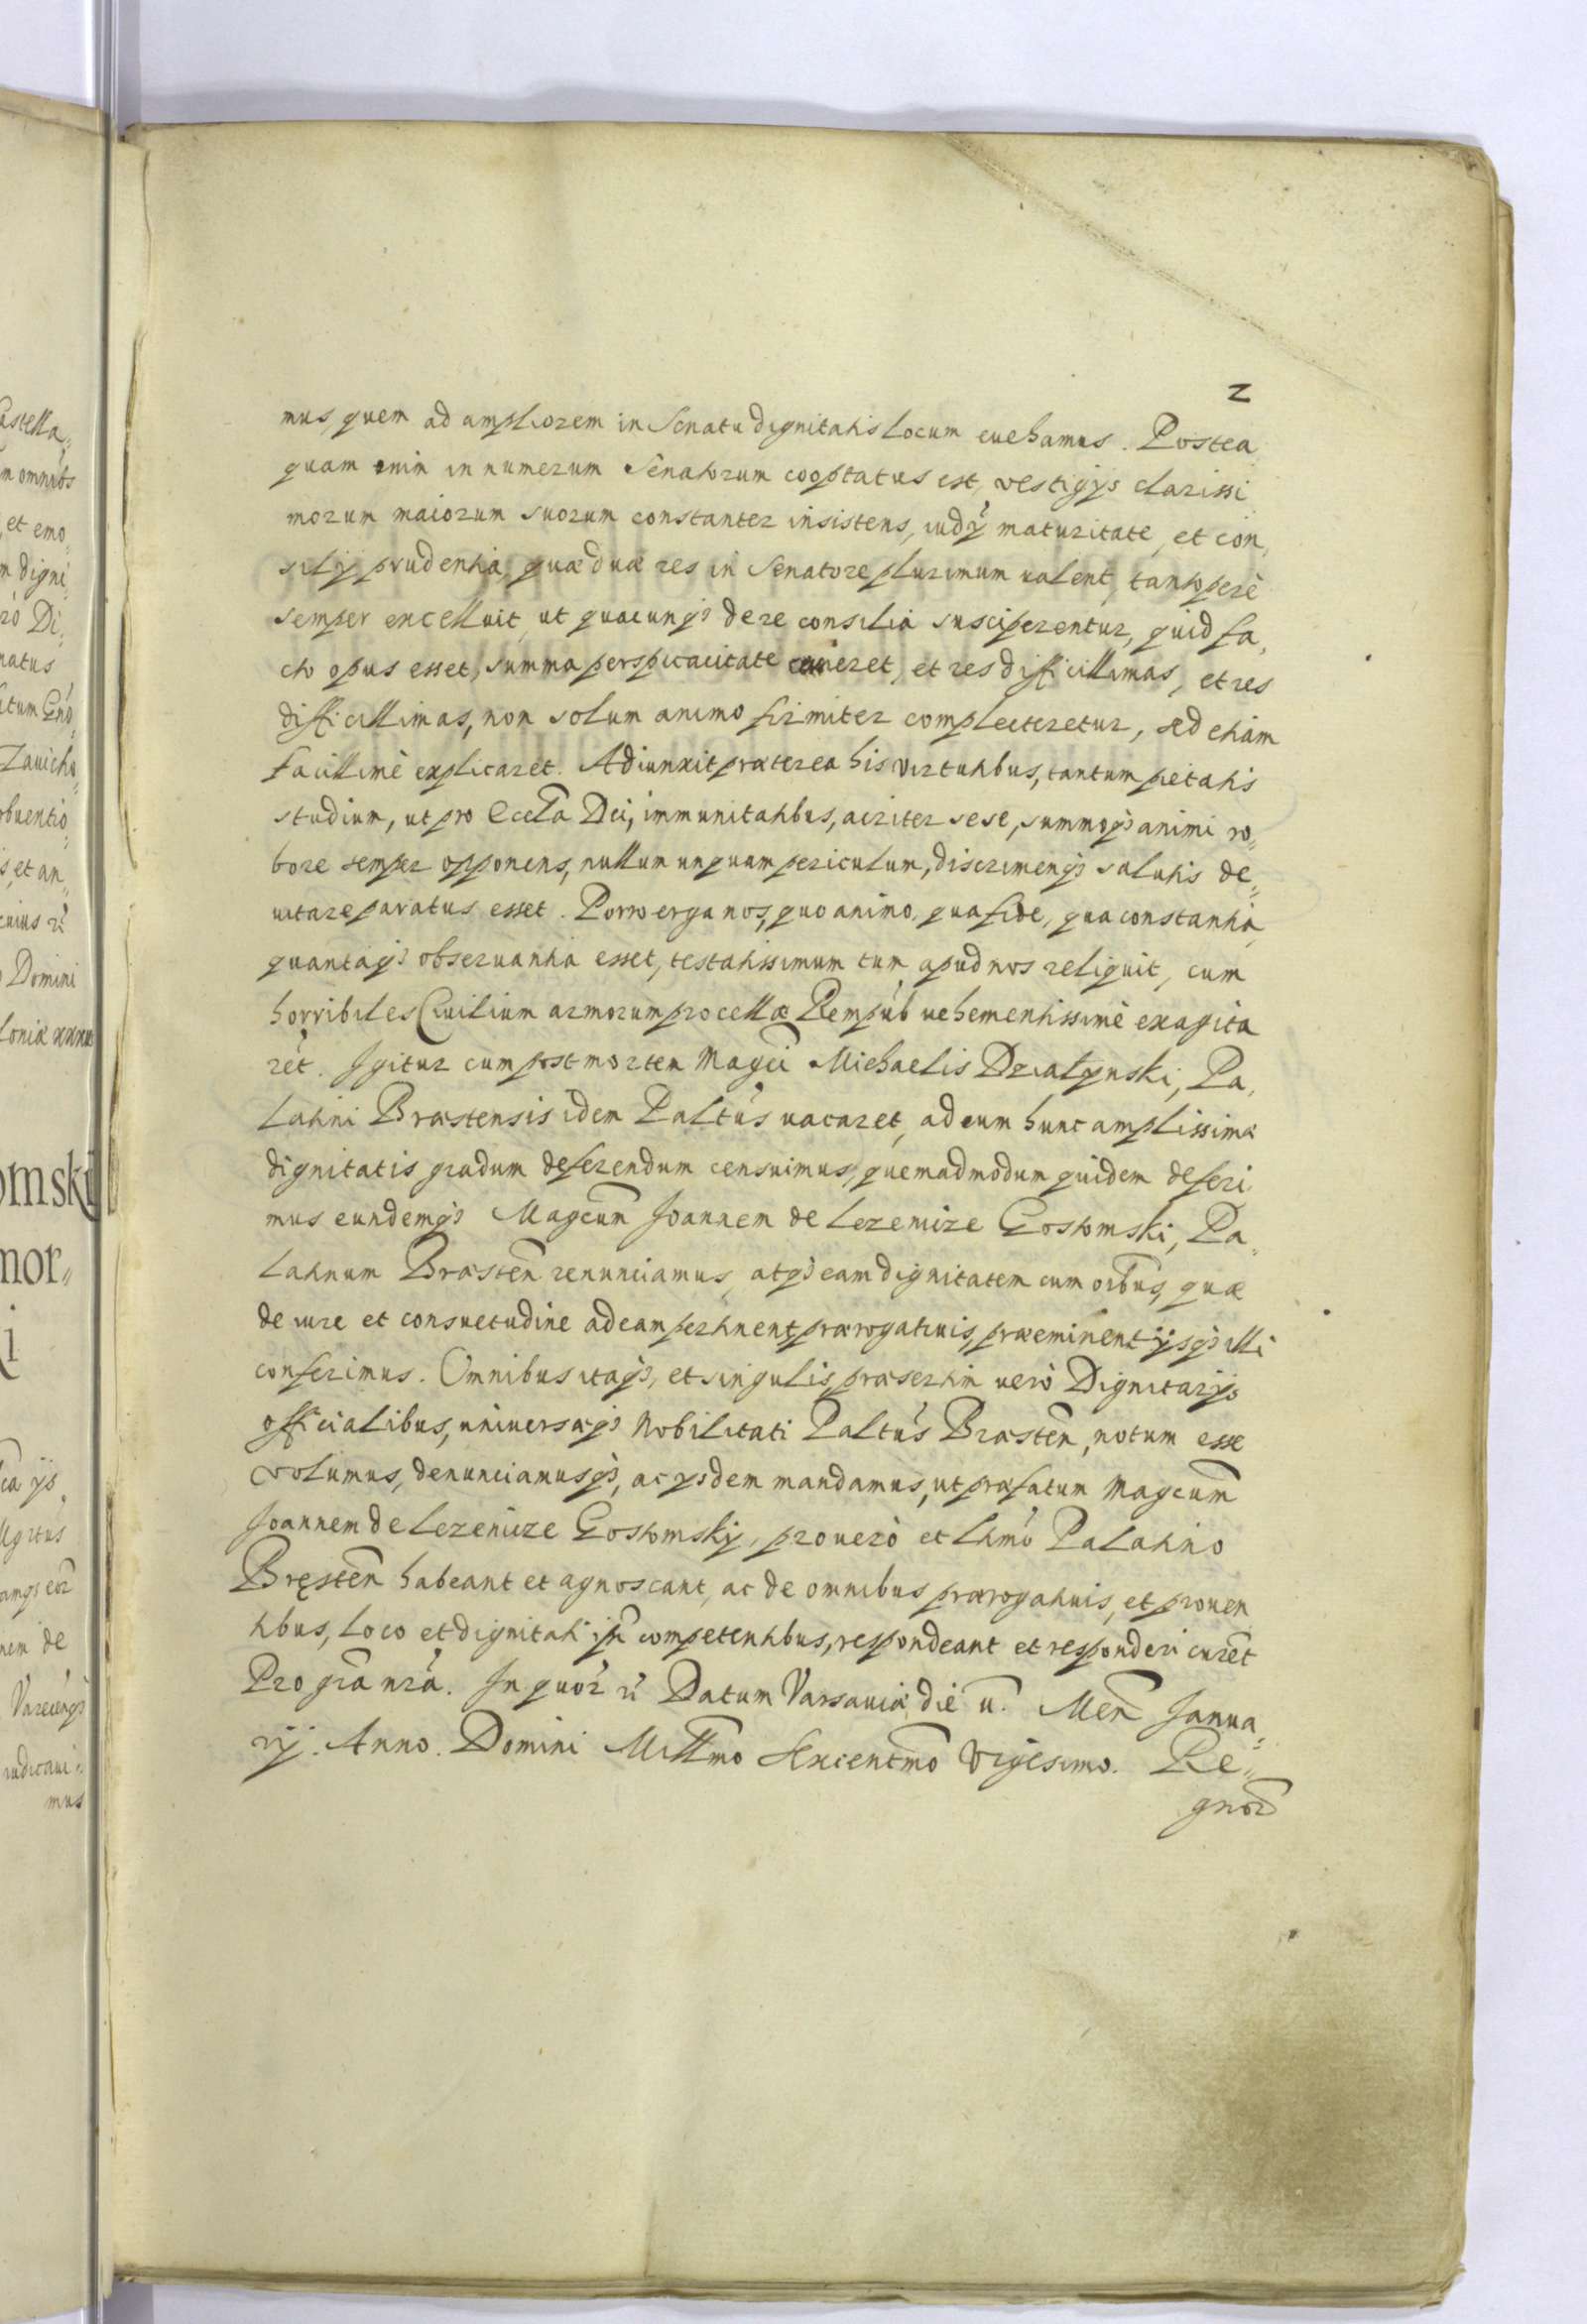 2
mus, quem ad ampliorem in Senatu dignitatis locum euehamus. Postea
quam enim in numerum Senatorum cooptatus est, vestigijs clarissi
morum maiorum suorum constanter insistens, iudÿ maturitate, et con,
silij prudentia, quæ duæ res in Senatore plurimum ualent, tantoperè
semper excelluit, ut quacunq3 de re consilia susciperentur, quid fa,
cto opus esset, summa perspicacitate cerneret, et res difficillimas, et res
difficillimas, non solum animo firmiter complecteretur, sed etiam
facillimè explicaret. Adiunxit præterea his virtutibus, tantum pietatis
studium, ut pro Eccla Dei, immunitatibus, acriter sese, summoq3 animi ro„
bore semper opponens, nullum unquam periculum, discrimenq3 salutis de„
uitare paratus esset. Porro erga nos, quo animo, qua fide, qua constantia,
quantaq3 obseruantia esset, testatissimum tum apud nos reliquit, cum
horribiles Ciuilium armorum procellæ Rempub uehementissimè exagita
ret. Igitur cum post mortem Magci Michaelis Dzialÿnski, Pa,
latini Bræstensis idem Paltus uacaret, ad eum hunc amplissimæ
dignitatis gradum deferendum censuimus, quemadmodum quidem deferi
mus eundemq3 Magcum Joannem de Lezenice Gostomski, Pa„
latinum Bræsten renunciamus, atq3 eam dignitatem cum oibus, quæ
de iure et consuetudine ad eam pertinent, prærogatiuis, præeminentijsq3 illi
conferimus. Omnibus itaq3, et singulis, præsertim uerò Dignitarijs
officialibus, uniuersæq3 Nobilitati Paltus Bræsten, notum esse
volumus, denunciamusq3, ac ijsdem mandamus, ut præfatum Magcum
Joannem de Lezenicze Gostomskÿ, pro uero et ltimo Palatino
Bręsten habeant et agnoscant, ac de omnibus prærogatiuis, et prouen
tibus, loco et dignitati ipi competentibus, respondeant et responderi curent
Pro gra nra. In quor r̃ Datum Varsauiæ die u. Men Janua„
rij. Anno. Domini Millmo Sexcentmo Vigesimo. Re„
gnor